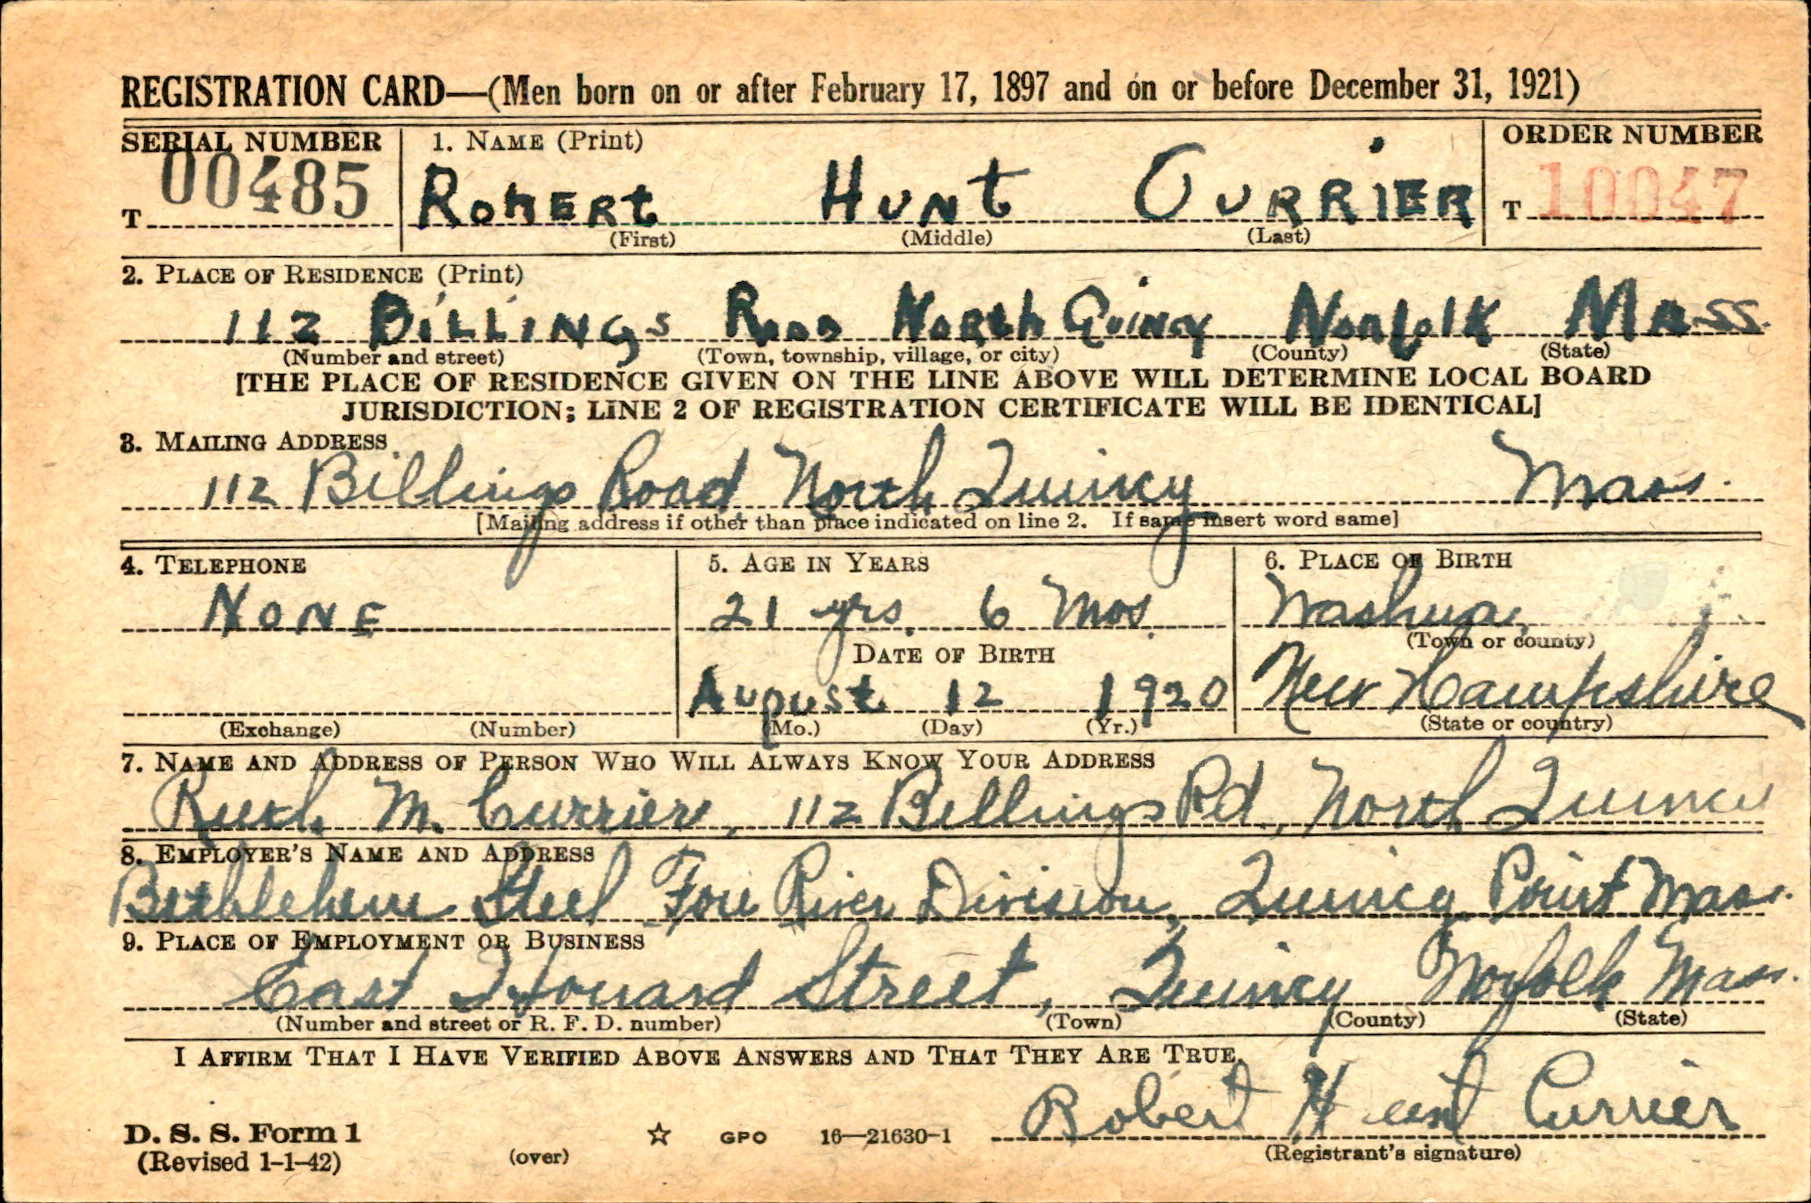 REGISTRATION CARD—(Men born on or after February 17, 1897 and on or before December 31, 1921)
SERIAL NUMBER 1. NAME (Print) ORDER NUMBER
T 00485 ROBERT HUNT CURRIER T 10047
(First) (Middle) (Last)
2. PLACE OF RESIDENCE (Print)
112 BILLINGS ROAD NORTH QUINCY NORFOLK MASS.
(Number and street) (Town, township, village, or city) (County) (State)
[THE PLACE OF RESIDENCE GIVEN ON THE LINE ABOVE WILL DETERMINE LOCAL BOARD
JURISDICTION; LINE 2 OF REGISTRATION CERTIFICATE WILL BE IDENTICAL]
3. MAILING ADDRESS
112 Billings Road, North Quincy Mass.
[Mailing address if other than place indicated on line 2. If same insert word same]
4. TELEPHONE 5. AGE IN YEARS 6. PLACE OF BIRTH
NONE 21 yrs. 6 Mos. Nashua,
DATE OF BIRTH (Town or county)
August 12 1920 New Hampshire
(Exchange) (Number) (Mo.) (Day) (Yr.) (State or country)
7. NAME AND ADDRESS OF PERSON WHO WILL ALWAYS KNOW YOUR ADDRESS
Ruth M. Currier, 112 Billings Rd., North Quincy
8. EMPLOYER'S NAME AND ADDRESS
Bethlehem Steel Fore River Division, Quincy Point Mass.
9. PLACE OF EMPLOYMENT OR BUSINESS
East Howard Street, Quincy Norfolk Mass.
(Number and street or R. F. D. number) (Town) (County) (State)
I AFFIRM THAT I HAVE VERIFIED ABOVE ANSWERS AND THAT THEY ARE TRUE.
Robert Hunt Currier
D. S. S. Form 1
(Revised 1-1-42) (over) ☆ GPO 16—21630-1 (Registrant's signature)